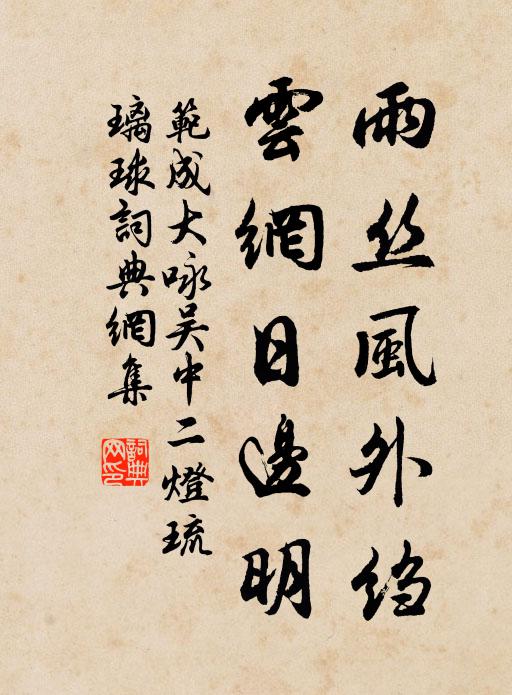 雨丝風外绉
雲網日邊明
範成大咏吴中二燈琉
璃球詞典網集
詞典网印